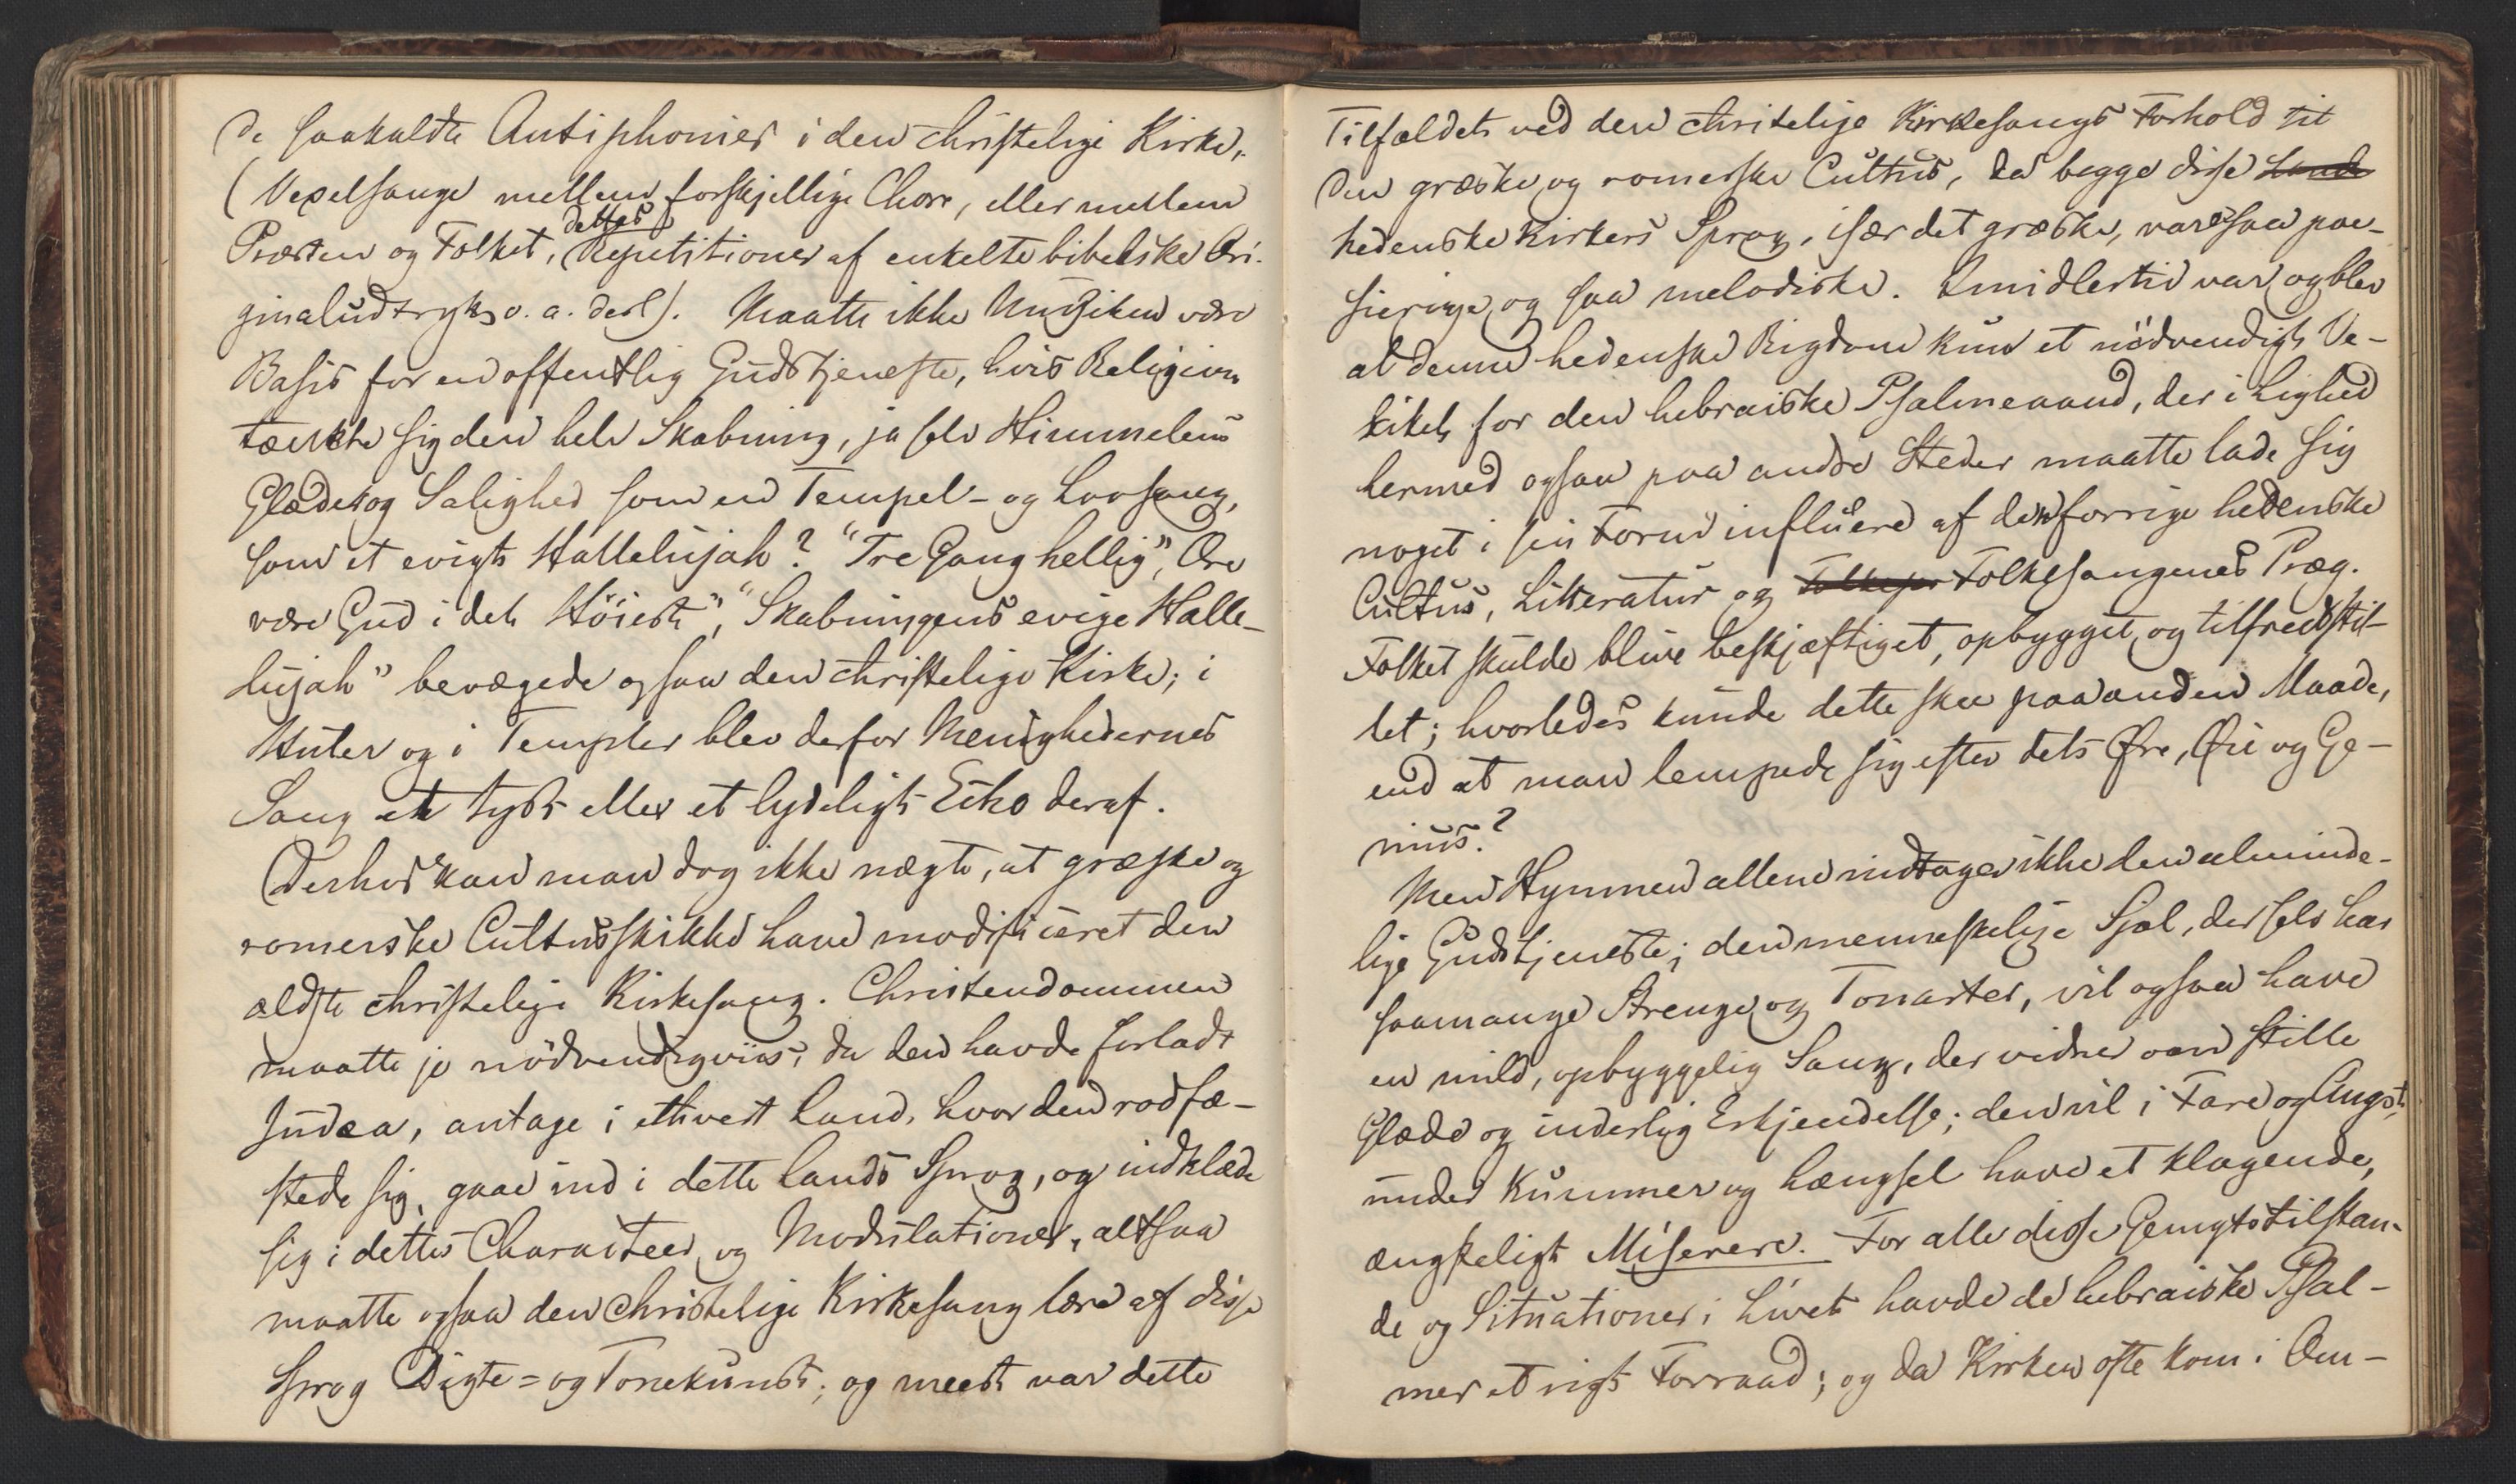 de saakaldte Antiphonier i den christelige Kirke,
(Vexelsange mellem forskjellige Chore, eller mellem
dettes
Præsten og Folket, Repetitioner af enkelte bibelske Ori-
ginaludtryk, o. a. desl). Maatte ikke Musiken være
Basis for en offentlig Gudstjeneste, hvis Religion
tænkte sig den hele Skabning, ja selv Himmelens
Glæder og Salighed som en Tempel- og Lovsang,
som et evigt Hallelujah? "Tre Gang hellig", Ære
være Gud i det Höieste", "Skabningens evige Halle-
lujah" bevægede ogsaa den christelige Kirke; i
Huler og i Templer blev derfor Menighedernes
Sang et tyst eller et lydeligt Echo deraf.
Derhos kan man dog ikke nægte, at græske og
romerske Cultusskikke have modificeret den
ældste christelige Kirkesang. Christendommen
maatte jo nödvendigviis, da den havde forladt
Judæa, antage i ethvert Land, hvor den rodfæ-
stede sig, gaae ind i dette Lands Sprog, og indklæde
sig i dettes Characteer og Modulationer, altsaa
maatte ogsaa den christelige Kirkesang lære af disse
Sprog Digte= og Tonekunst; og meest var dette
Tilfældet ved den christelige Kirkesangs Forhold til
den græske og romerske Cultus, da begge disse Lande
hedenske Kirkers Sprog, især det græske, vare saa poe-
sierige og saa melodiske. Imidlertid var og blev
al denne hedenske Rigdom kun et nödvendigt Ve-
hikel for den hebraiske Psalmeaand, der i Lighed
hermed ogsaa paa andre Steder maatte lade sig
noget i sin Form influere af den forrige hedenske
Cultus, Litteratur og Folkesangenes Præg.
Folket skulde blive beskjæftiget, opbygget og tilfredsstil-
let; hvorledes kunde dette skee paa anden Maade,
end at man lempede sig efter dets Øre, Øie og Ge-
nius?
Men Hymnen allene indtager ikke den alminde-
lige Gudstjeneste; den menneskelige Sjæl, der selv har
saamange Strenge og Tonarter, vil ogsaa have
en mild, opbyggelig Sang, der vidner om stille
Glæde og inderlig Erkjendelse; den vil i Fare og Angst,
under Kummer og Længsel have et klagende,
ængsteligt Miserere. For alle disse Gemytstilstan-
de og Situationer i Livet havde de hebraiske Psal-
mer et rigt Forraad; og da Kirken ofte kom i Om-